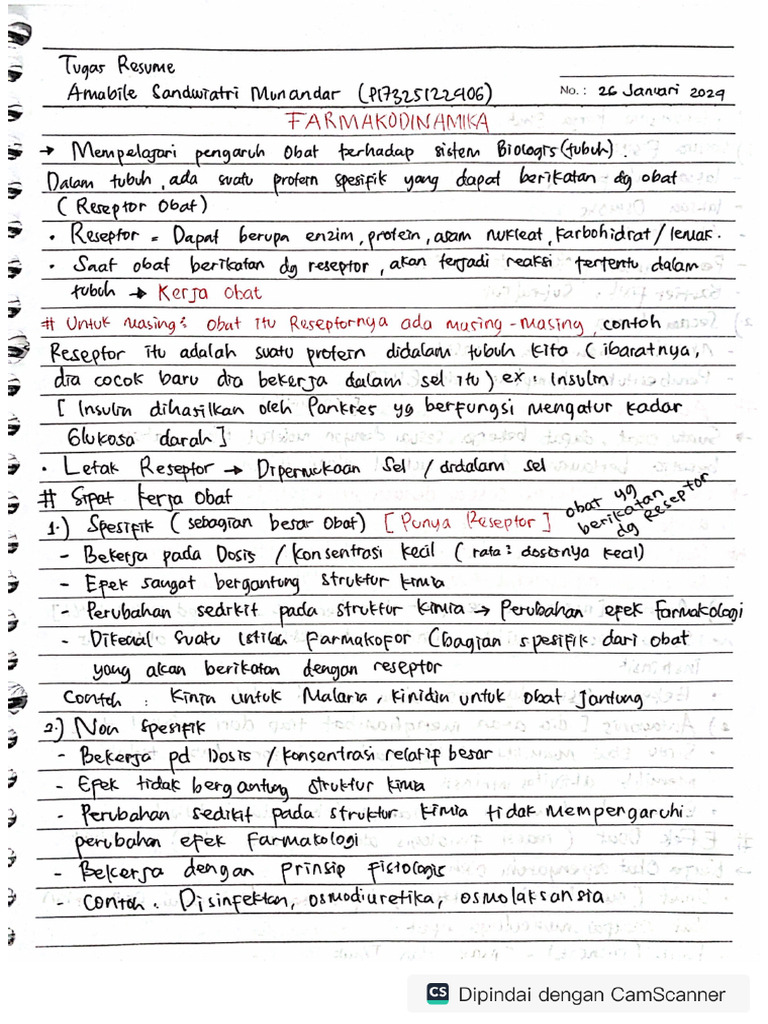 Tugas Resume
Amabile Sandwiatri Munandar (P17325122406)
No. : 26 Januari 2024
FARMAKODINAMIKA
→ Mempelajari pengaruh Obat terhadap sistem Biologis (tubuh).
Dalam tubuh, ada suatu protein spesifik yang dapat berikatan dg obat
(Reseptor Obat)
• Reseptor = Dapat berupa enzim, protein, asam nukleat, karbohidrat / lemak.
• Saat obat berikatan dg reseptor, akan terjadi reaksi tertentu dalam
tubuh → Kerja Obat
# Untuk masing² obat itu Reseptornya ada masing-masing, contoh
Reseptor itu adalah suatu protein didalam tubuh kita (ibaratnya,
dia cocok baru dia bekerja dalam sel itu) ex : Insulin
[ Insulin dihasilkan oleh Pankres yg berfungsi mengatur kadar
Glukosa darah ]
• Letak Reseptor → Dipermukaan Sel / didalam sel
# Sipat kerja Obat
1.) Spesifik (sebagian besar Obat) [Punya Reseptor] obat yg
berikatan
dg Reseptor
- Bekerja pada Dosis / Konsentrasi kecil (rata² dosisnya kecil)
- Efek sangat bergantung struktur kimia
- Perubahan sedikit pada struktur kimia → Perubahan efek farmakologi
- Dikenal suatu istilah Farmakofor (bagian spesifik dari obat
yang akan berikatan dengan reseptor
Contoh : Kinin untuk Malaria, kinidin untuk obat Jantung
2.) Non spesifik
- Bekerja pd Dosis / konsentrasi relatif besar
- Efek tidak bergantung struktur kimia
- Perubahan sedikit pada struktur kimia tidak mempengaruhi
perubahan efek Farmakologi
- Bekerja dengan prinsip fisiologis
- Contoh. Disinfektan, osmodiuretika, osmolaksansia
CS Dipindai dengan CamScanner